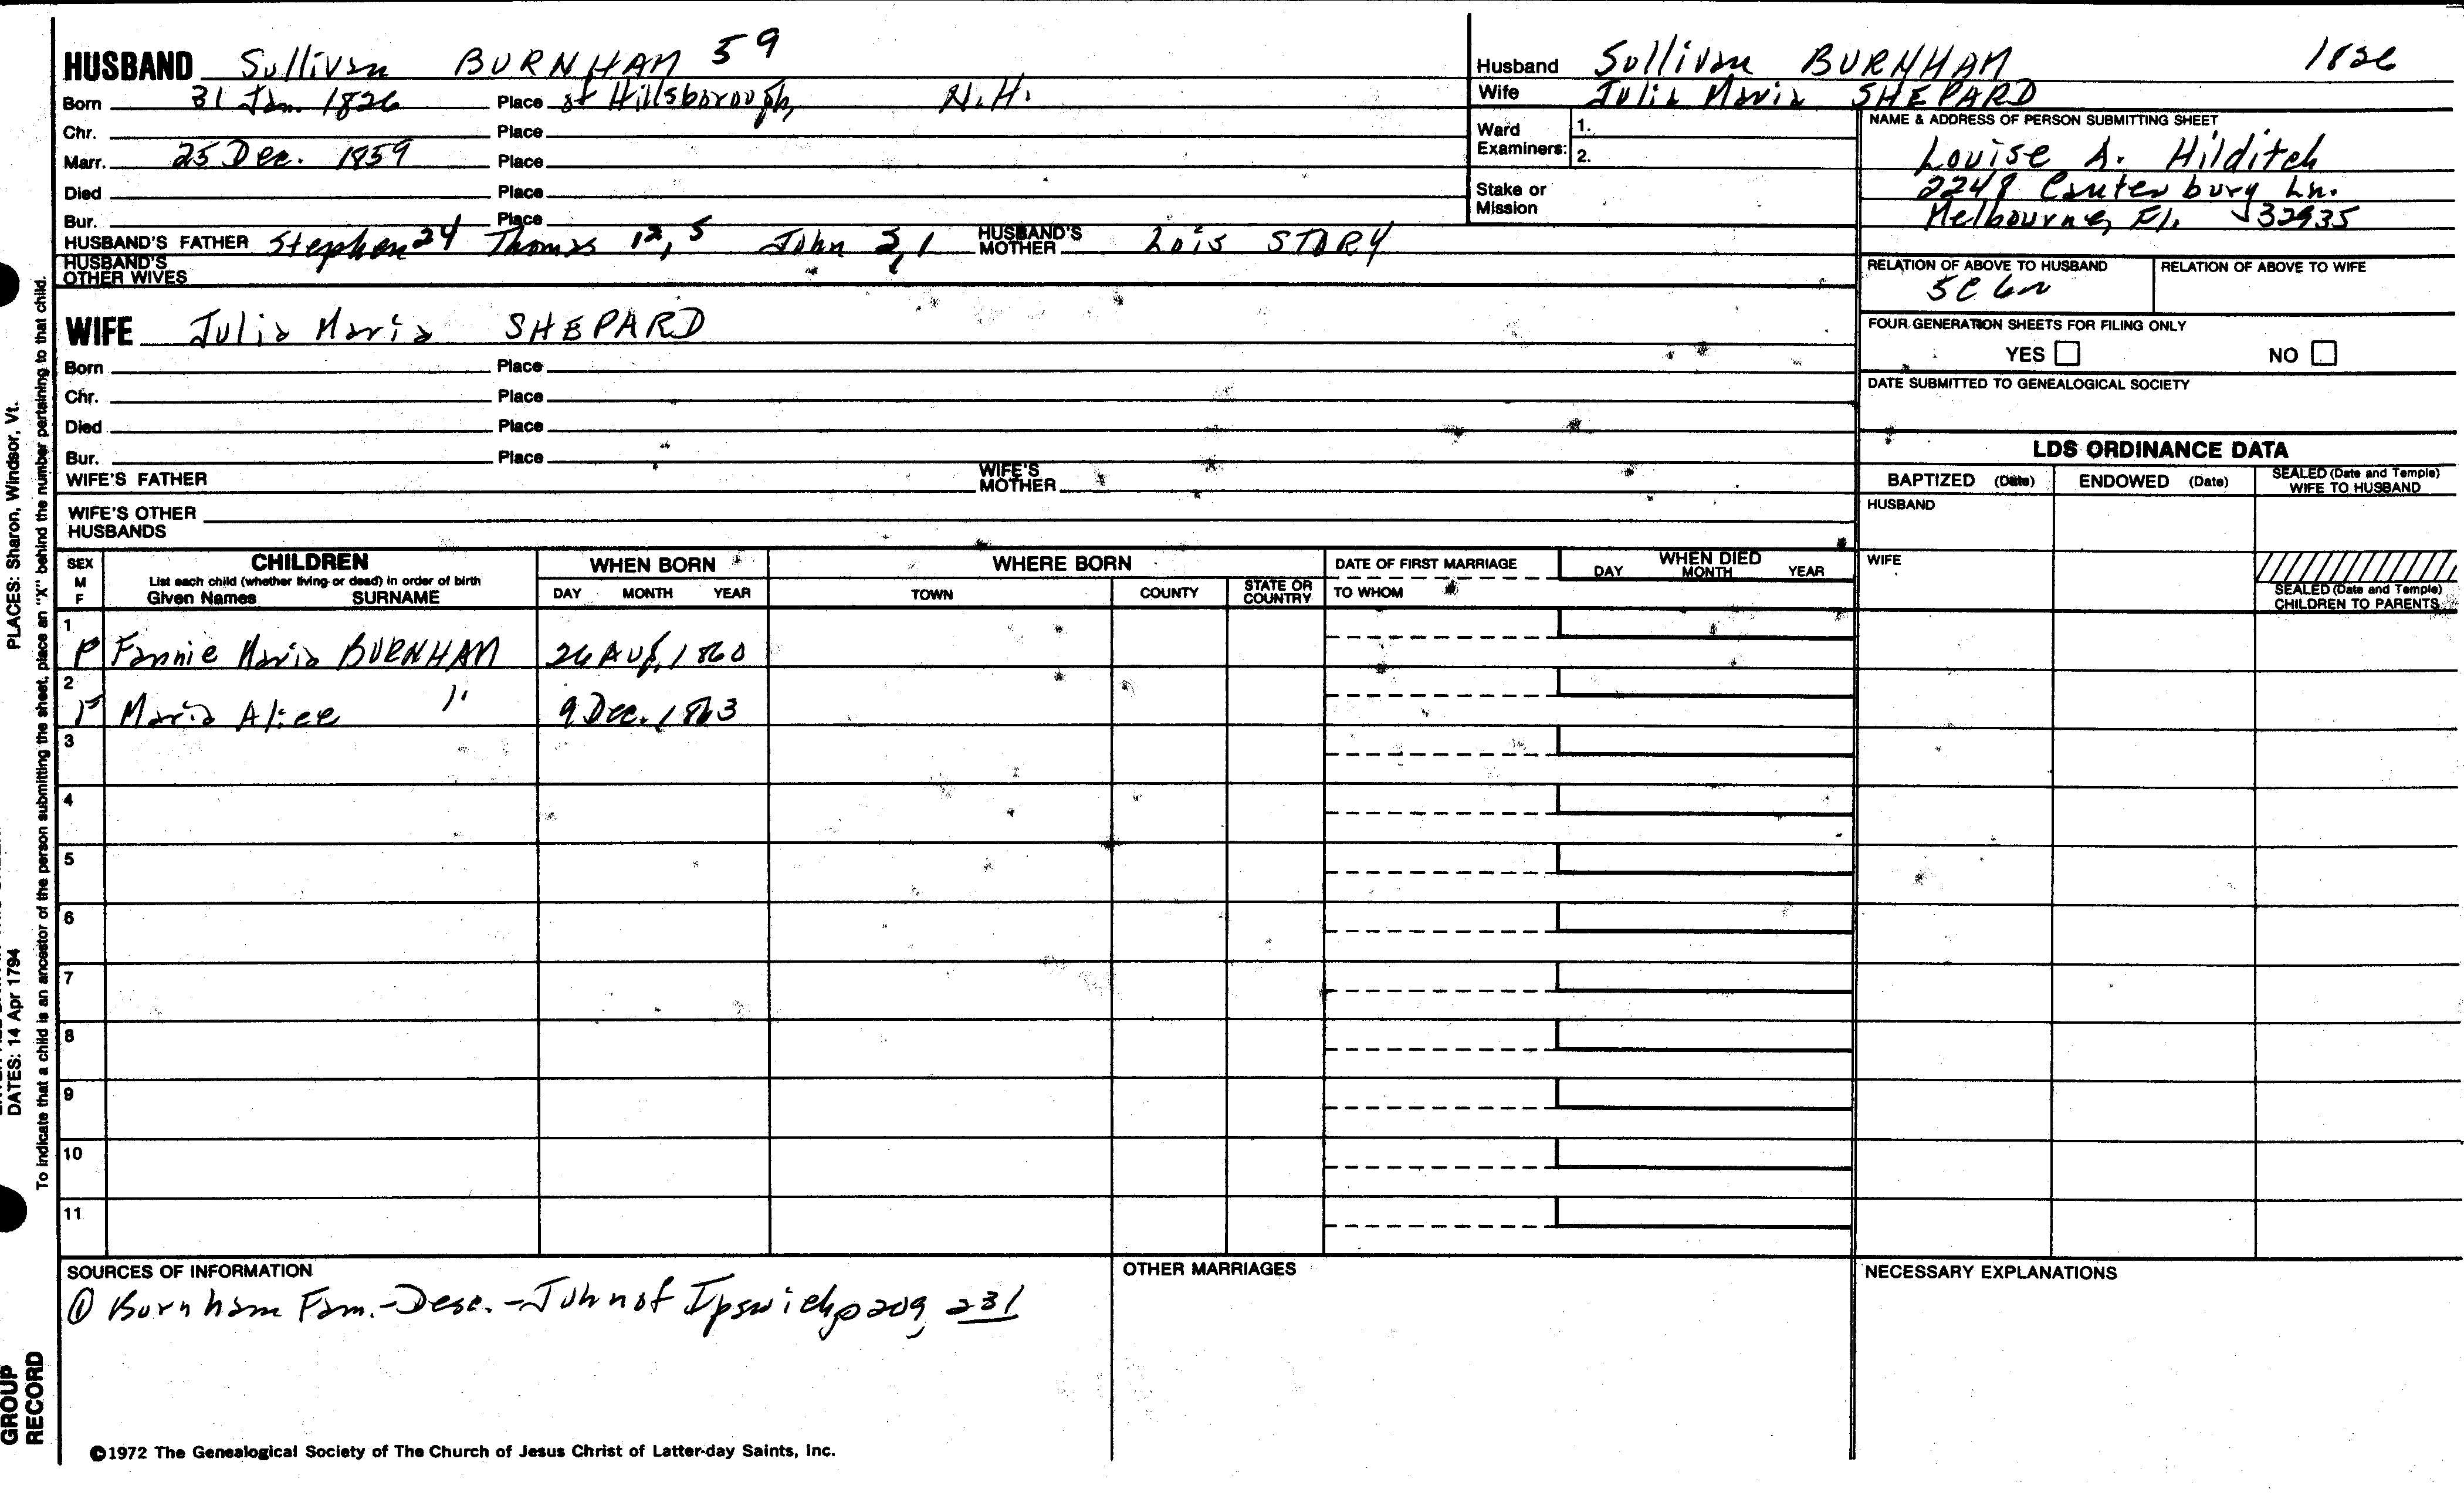 HUSBAND Sullivan BURNHAM 59
Born 31 Jan. 1826 Place at Hillsborough, N.H.
Chr. Place
Marr. 25 Dec. 1859 Place
Died Place
Bur. Place
HUSBAND'S FATHER Stephen 24 Thomas 12, 5 John 2, 1 HUSBAND'S MOTHER Lois STORY
HUSBAND'S OTHER WIVES
WIFE Julia Maria SHEPARD
Born Place
Chr. Place
Died Place
Bur. Place
WIFE'S FATHER WIFE'S MOTHER
WIFE'S OTHER HUSBANDS
Husband Sullivan BURNHAM 1826
Wife Julia Maria SHEPARD
Ward Examiners: 1.
2.
Stake or Mission
NAME & ADDRESS OF PERSON SUBMITTING SHEET
Louise A. Hilditch
2248 Canterbury Ln.
Melbourne, Fl. 32935
RELATION OF ABOVE TO HUSBAND RELATION OF ABOVE TO WIFE
5C
FOUR GENERATION SHEETS FOR FILING ONLY
YES NO
DATE SUBMITTED TO GENEALOGICAL SOCIETY
LDS ORDINANCE DATA
BAPTIZED (Date) ENDOWED (Date) SEALED (Date and Temple) WIFE TO HUSBAND
HUSBAND
WIFE
SEALED (Date and Temple) CHILDREN TO PARENTS
SEX M F CHILDREN WHEN BORN WHERE BORN DATE OF FIRST MARRIAGE WHEN DIED
List each child (whether living or dead) in order of birth
Given Names SURNAME DAY MONTH YEAR TOWN COUNTY STATE OR COUNTRY TO WHOM DAY MONTH YEAR
1
F Fannie Maria BURNHAM 26 Aug. 1860
2
F Maria Alice " 9 Dec. 1863
3
4
5
6
7
8
9
10
11
SOURCES OF INFORMATION OTHER MARRIAGES NECESSARY EXPLANATIONS
① Burnham Fam.-Desc.-John of Ipswich, p 209, 231
©1972 The Genealogical Society of The Church of Jesus Christ of Latter-day Saints, Inc.
PLACES: Sharon, Windsor, Vt.
DATES: 14 Apr 1794
To indicate that a child is an ancestor of the person submitting the sheet, place an "X" behind the number pertaining to that child.
GROUP
RECORD